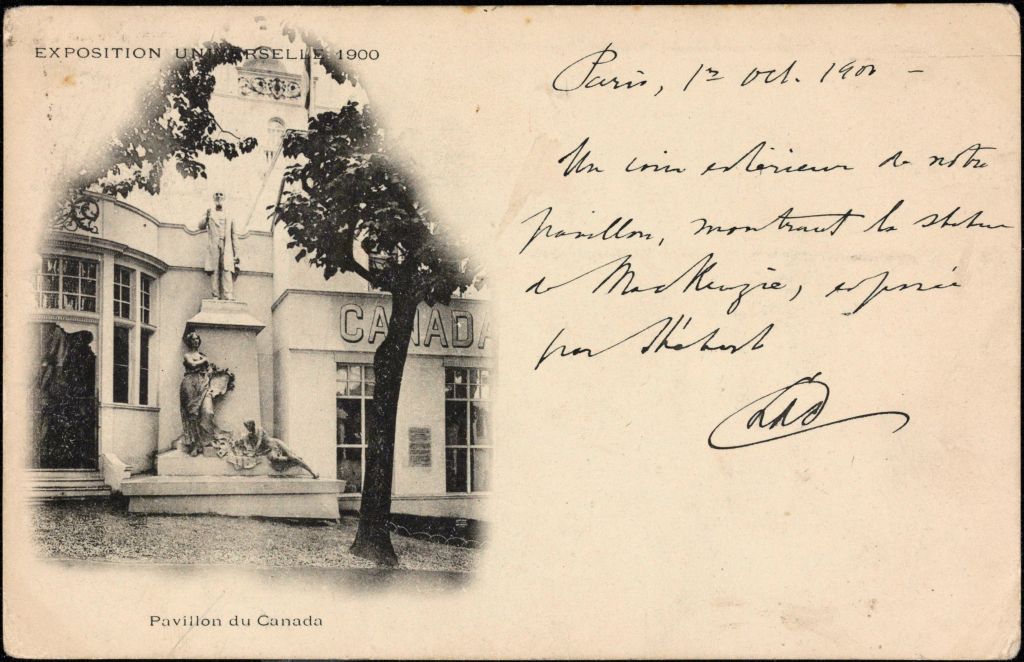 EXPOSITION UNIVERSELLE 1900
CANADA
Pavillon du Canada
Paris, 12 Oct. 1900 -
Un coin extérieur de notre
pavillon, montrant la statue
de MacKenzie, exposée
par Hébert